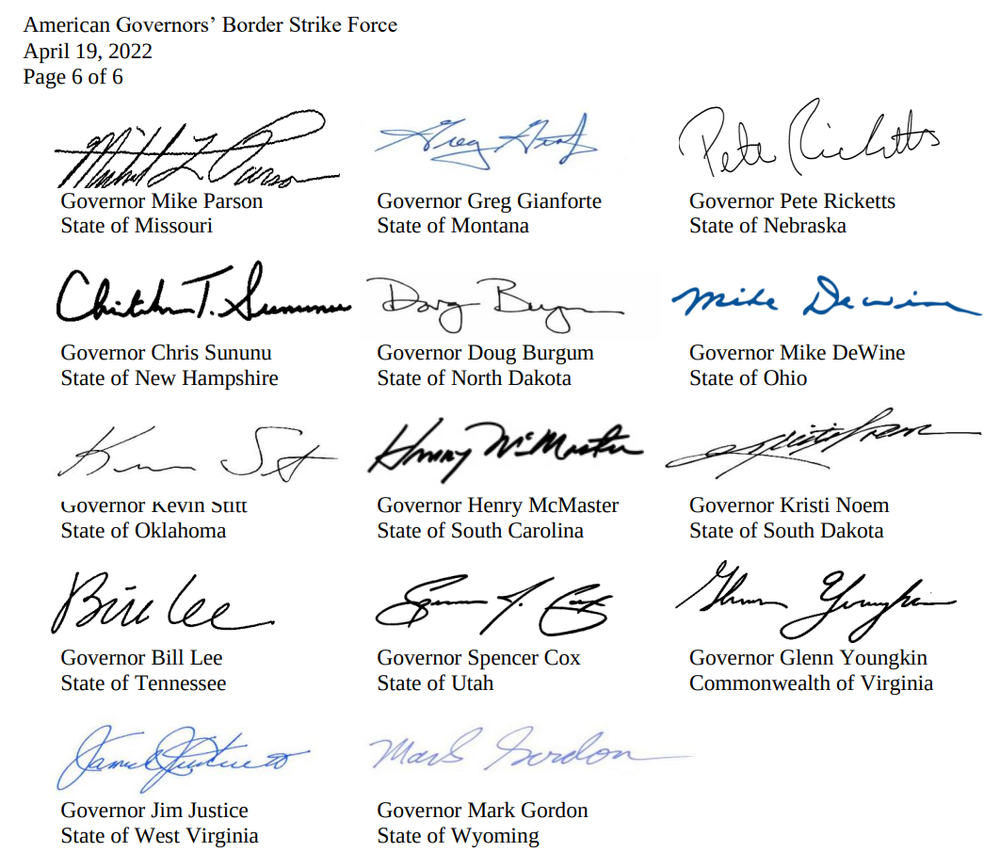 American Governors’ Border Strike Force
April 19, 2022
Page 6 of 6
Greg
Pete Ricketts
Governor Mike Parson
Governor Greg Gianforte
Governor Pete Ricketts
State of Missouri
State of Montana
State of Nebraska
Doug Burgum
Mike DeWine
Governor Chris Sununu
Governor Doug Burgum
Governor Mike DeWine
State of New Hampshire
State of North Dakota
State of Ohio
Henry McMaster
Governor Kevin Stitt
Governor Henry McMaster
Governor Kristi Noem
State of Oklahoma
State of South Carolina
State of South Dakota
Bill Lee
Governor Bill Lee
Governor Spencer Cox
Governor Glenn Youngkin
State of Tennessee
State of Utah
Commonwealth of Virginia
Mark Gordon
Governor Jim Justice
Governor Mark Gordon
State of West Virginia
State of Wyoming